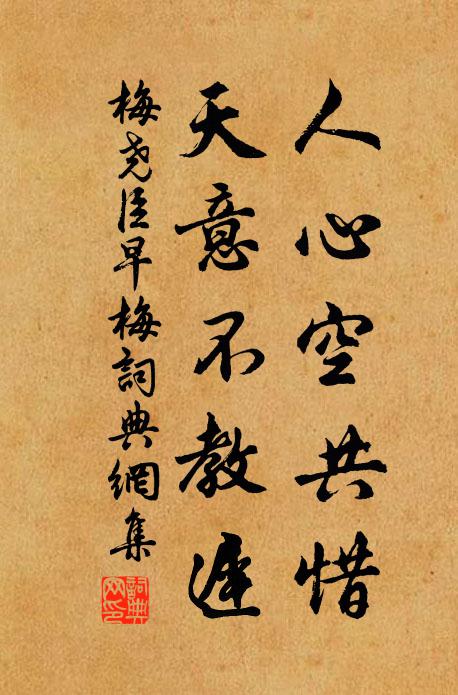 人心空共惜
天意不教遲
梅尧臣早梅詞典網集
詞典网印